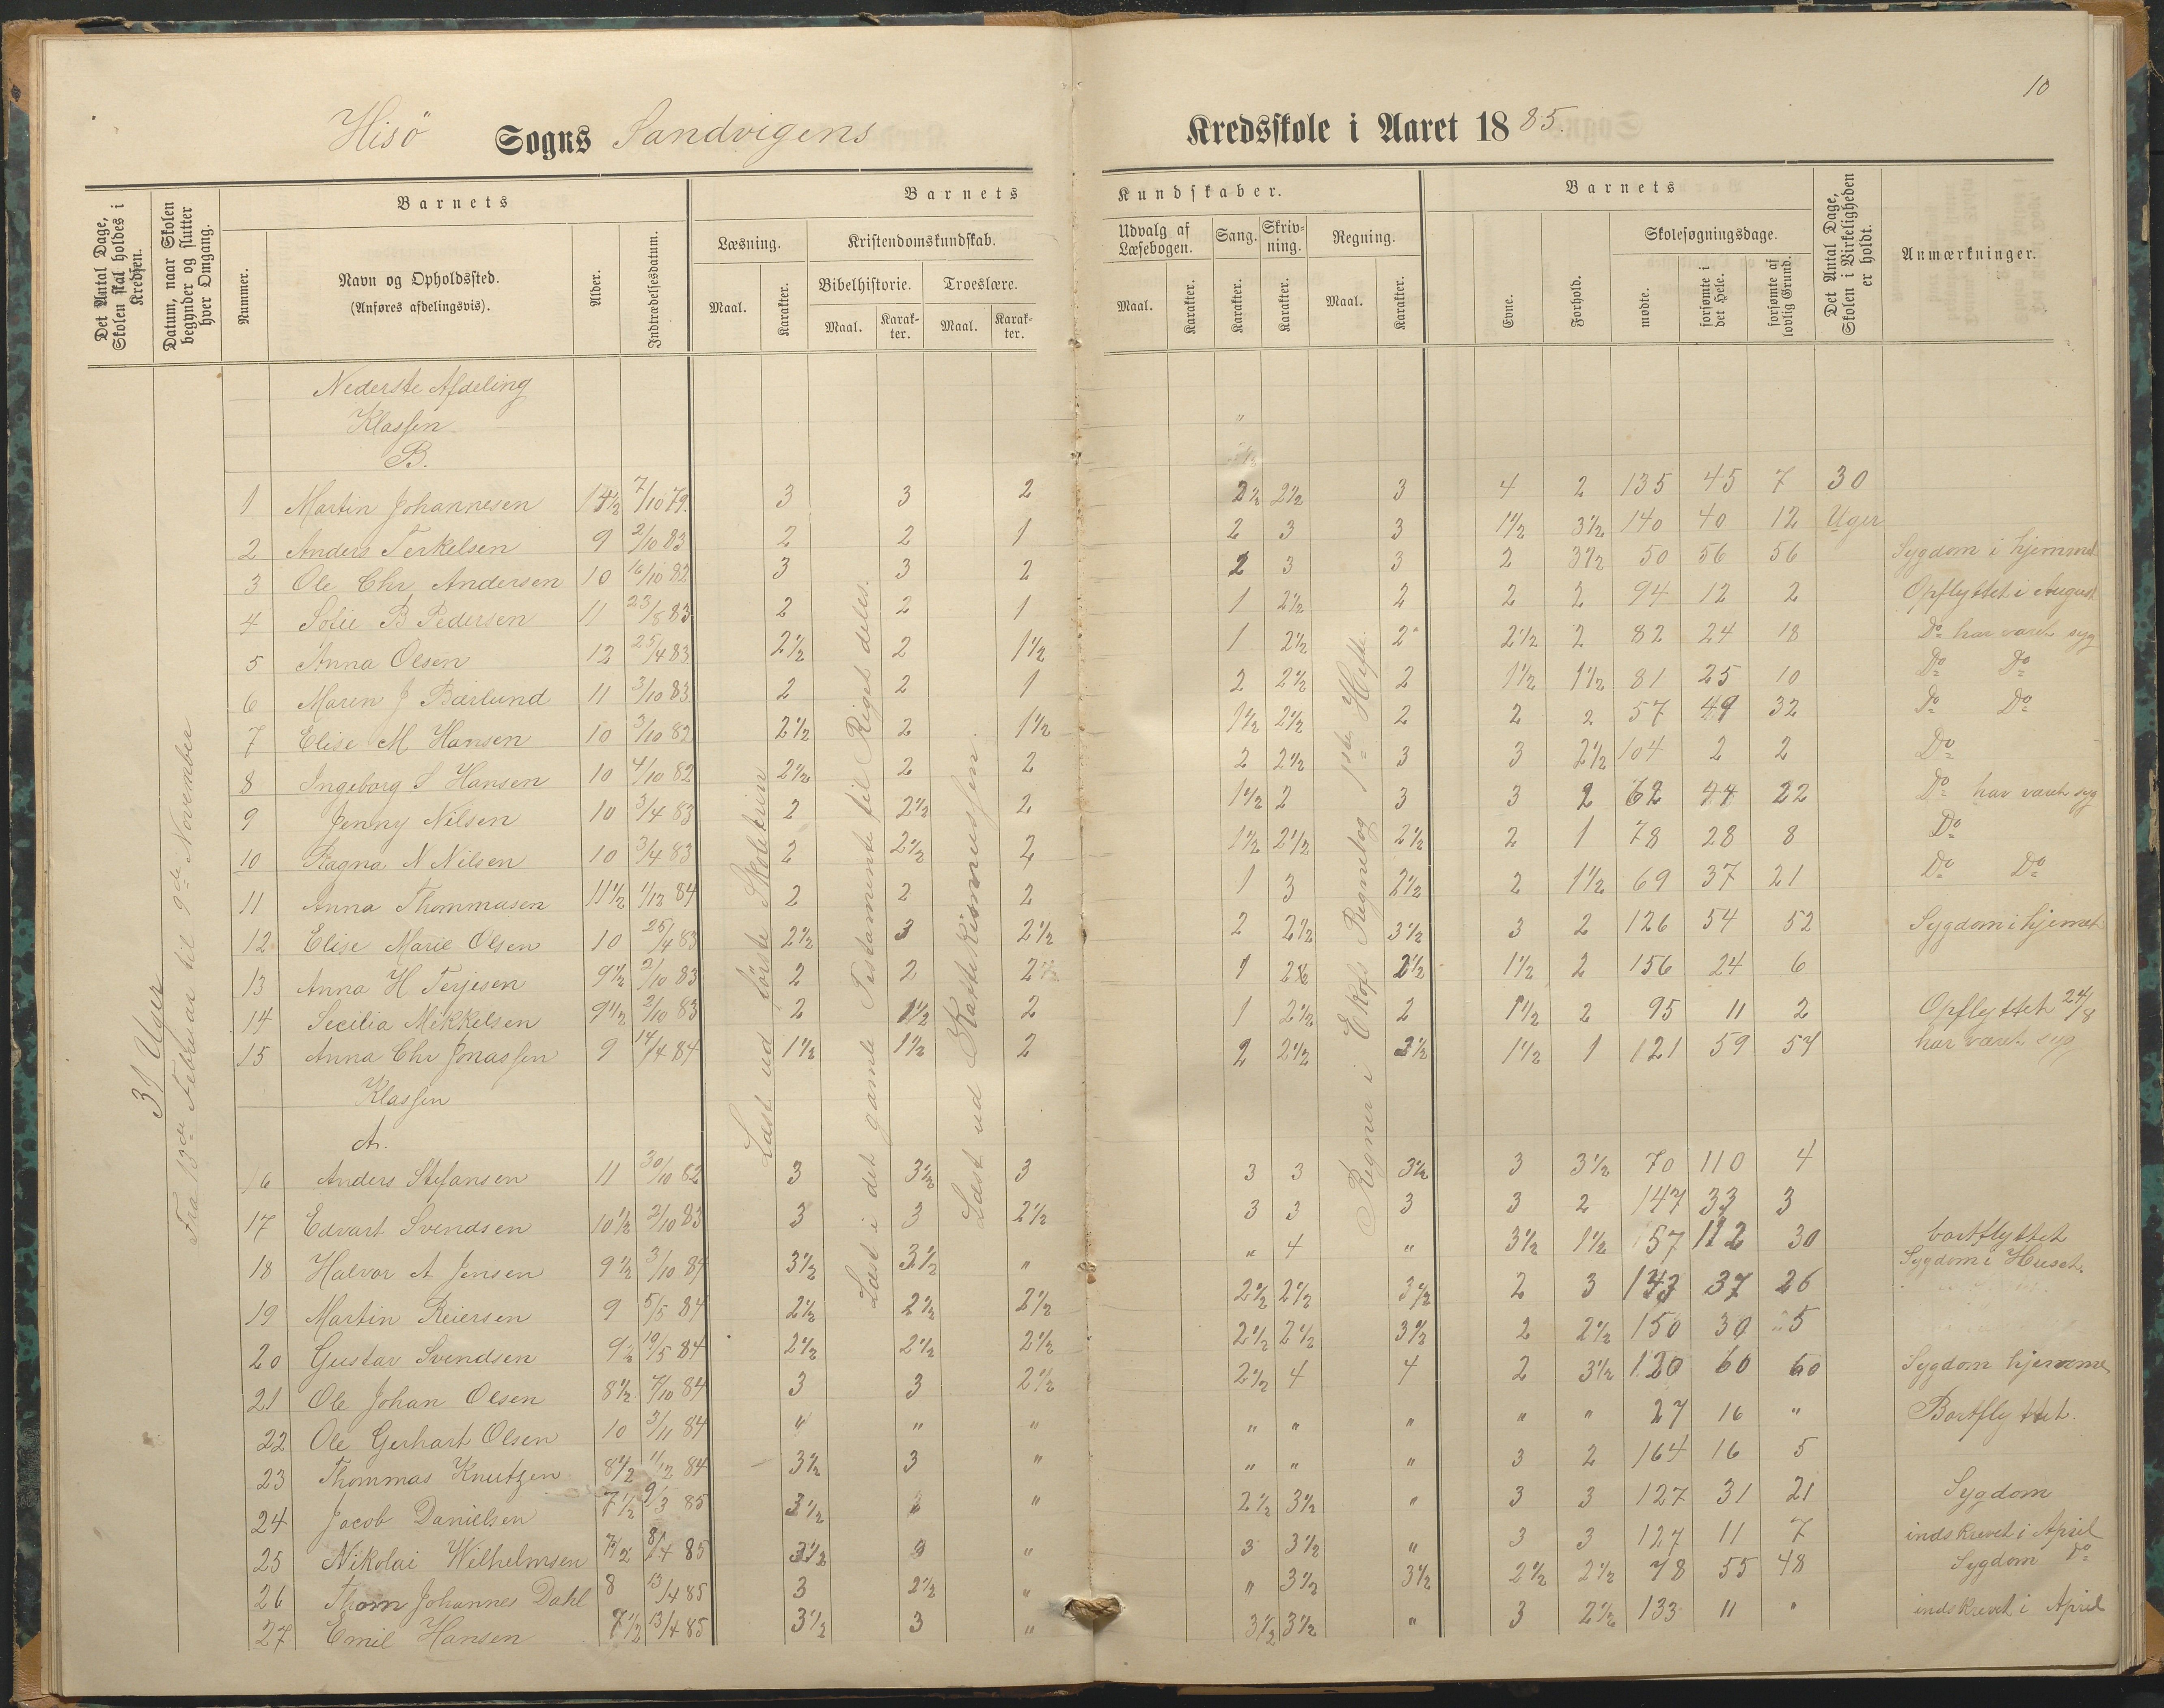 10
Hisö Sogns Sandvigens Kredsskole i Aaret 1885.
Det Antal Dage, Skolen skal holdes i Kredsen.
Datum, naar Skolen begynder og slutter hver Omgang.
Barnets
Nummer.
Navn og Opholdssted.
(Anføres afdelingsvis).
Alder.
Indtrædelsesdatum.
Barnets Kundskaber.
Læsning.
Maal. Karakter.
Kristendomskundskab.
Bibelhistorie. Troeslære.
Maal. Karakter. Maal. Karakter.
Udvalg af Læsebogen.
Maal. Karakter.
Sang.
Karakter.
Skrivning.
Karakter.
Regning.
Maal. Karakter.
Barnets
Evne.
Forhold.
Skolesøgningsdage.
mødte.
forsømte i det Hele.
forsømte af lovlig Grund.
Det Antal Dage, Skolen i Virkeligheden er holdt.
Anmærkninger.
31 Uger
Fra 13de Februar til 9de November
Læst ud første Skoletrin
Læst i det gamle Testamente til Riget deles.
Læst ud Kattekismussen.
Regner i Ekofs Regnebog 1ste Hefte.
Nederste Afdeling
Klassen
B.
1 Martin Johannesen 14½ 7/10 79. 3 3 2 2½ 2½ 3 4 2 135 45 7 30
2 Anders Terkelsen 9 2/10 83 2 2 1 2 3 3 1½ 3½ 140 40 12 Uger
3 Ole Chr Andersen 10 16/10 82 3 3 2 2 3 3 2 3½ 50 56 56 Sygdom i hjemmet
4 Sofie B Pedersen 11 23/8 83 2 2 1 1 2½ 2 2 2 94 12 2 Opflyttet i August
5 Anna Olsen 12 25/4 83 2½ 2 1½ 1 2½ 2 2½ 2 82 24 18 Do har været syg
6 Maren J Bærlund 11 3/10 83 2 2 1 2 2½ 2 1½ 1½ 81 25 10 Do Do
7 Elise M Hansen 10 3/10 82 2½ 2 1½ 1½ 2½ 2 2 2 57 49 32 Do Do
8 Ingeborg S Hansen 10 4/10 82 2½ 2 2 2 2½ 3 3 2½ 104 2 2 Do
9 Jenny Nilsen 10 3/4 83 2 2½ 2 1½ 2 3 3 2 62 44 22 Do har været syg
10 Ragna N Nilsen 10 3/4 83 2 2½ 2 1½ 2½ 2½ 2 1 78 28 8 Do
11 Anna Thommasen 11½ 1/12 84 2 2 2 1 3 2½ 2 1½ 69 37 21 Do Do
12 Elise Marie Olsen 10 25/4 83 2½ 3 2½ 2 2½ 3½ 3 2 126 54 52 Sygdom i hjemet
13 Anna H Terjesen 9½ 2/10 83 2 2 2 1 2½ 2½ 1½ 2 156 24 6
14 Secilia Mikkelsen 9½ 2/10 83 2 1½ 2 1 2½ 2 1½ 2 95 11 2 Opflyttet 24/8
15 Anna Chr Jonassen 9 14/4 84 1½ 1½ 2 2 2½ 3½ 1½ 1 121 59 57 har været syg
Klassen
A.
16 Anders Stefansen 11 30/10 82 3 3½ 3 3 3 3½ 3 3½ 70 110 4
17 Edvart Svendsen 10½ 2/10 83 3 3 2½ 3 3 3 3 2 147 33 3
18 Halvor A Jensen 9½ 3/10 84 3½ 3½ " " 4 " 3½ 1½ 57 112 30 bortflyttet
19 Martin Reiersen 9 5/5 84 2½ 2½ 2½ 2½ 2½ 3½ 2 3 143 37 26 Sygdom i Huset.
20 Gustav Svendsen 9½ 10/5 84 2½ 2½ 2½ 2½ 2½ 3½ 2 2½ 150 30 5
21 Ole Johan Olsen 8½ 7/10 84 3 3 2½ 2½ 4 4 2 3½ 120 60 60 Sygdom hjemme
22 Ole Gerhart Olsen 10 3/11 84 " " " " " " " " 27 16 " Bortflyttet.
23 Thommas Knutzen 8½ 11/12 84 3½ 3 " " " " 3 2 164 16 5
24 Jacob Danielsen 7½ 9/3 85 3½ " 2½ 3½ " 3 3 127 31 21 Sygdom
25 Nikolai Wilhelmsen 7½ 8/4 85 3½ 3 " 3 3½ " 3 3 127 11 7 indskrevet i April
26 Thom Johannes Dahl 8 13/4 85 3 2½ " " 3½ 3½ 2½ 2½ 78 55 48 Sygdom Do
27 Emil Hansen 7½ 13/4 85 3½ 3 " 3½ 3½ " 3 2½ 133 11 " indskrevet i April